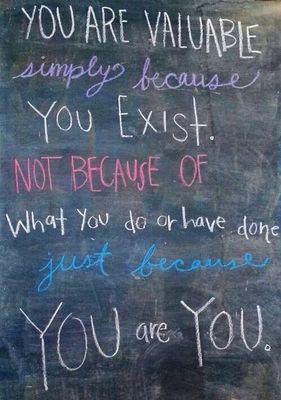 YOU ARE VALUABLE
simply because
YOU EXIST.
NOT BECAUSE OF
What You do or have done
just because
YOU are YOU.